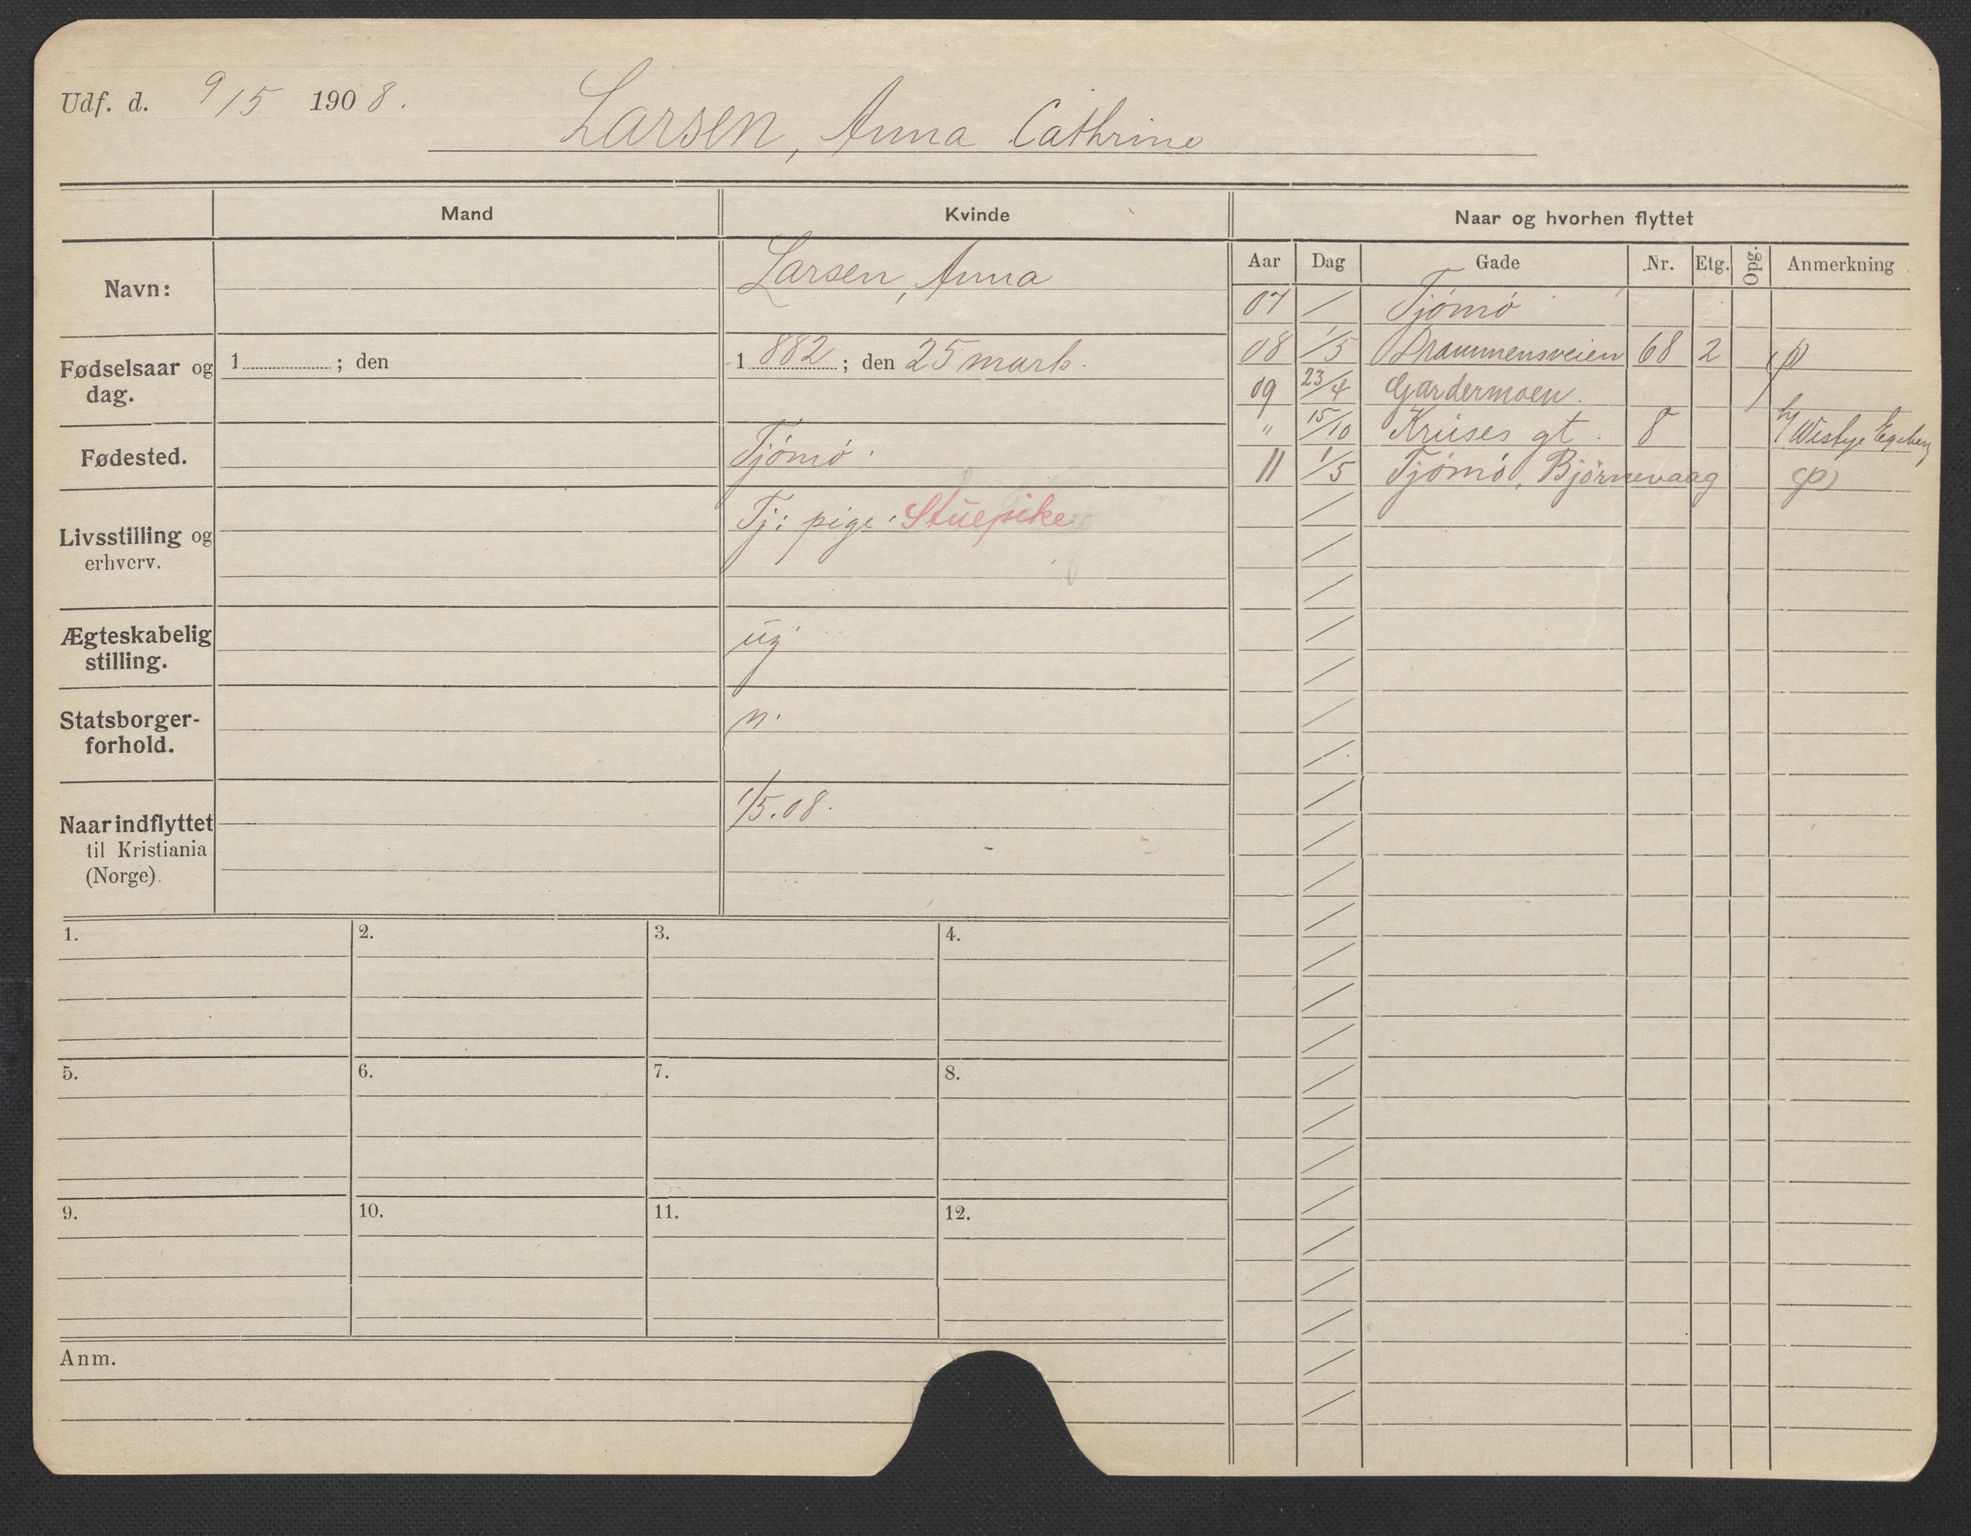 Udf. d. 9/5 1908.
Larsen, Anna Cathrine
Mand
Kvinde
Naar og hvorhen flyttet
Navn:
Larsen, Anna
Fødselsaar og dag.
1 ; den
1 882 ; den 25 marts.
Fødested.
Tjømø.
Livsstilling og erhverv.
Tj: pige. Stuepike
Ægteskabelig stilling.
ug.
Statsborgerforhold.
n.
Naar indflyttet til Kristiania (Norge).
1/5.08.
Aar Dag Gade Nr. Etg. Opg. Anmerkning
07 / Tjømø
08 1/5 Drammensveien 68 2 (p)
09 23/4 Gardermoen.
" 15/10 Kruses gt. 8 h/ Wisbye
11 1/5 Tjømø, Bjørnevaag (p)
1. 2. 3. 4.
5. 6. 7. 8.
9. 10. 11. 12.
Anm.